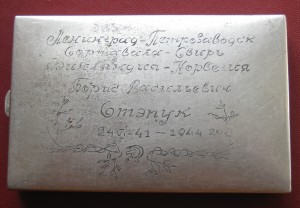 Ленинград-Петрозаводск
Сортавала-Свирь
Финляндия-Норвегия
Борис Васильевич
Стэпук
1941-1944